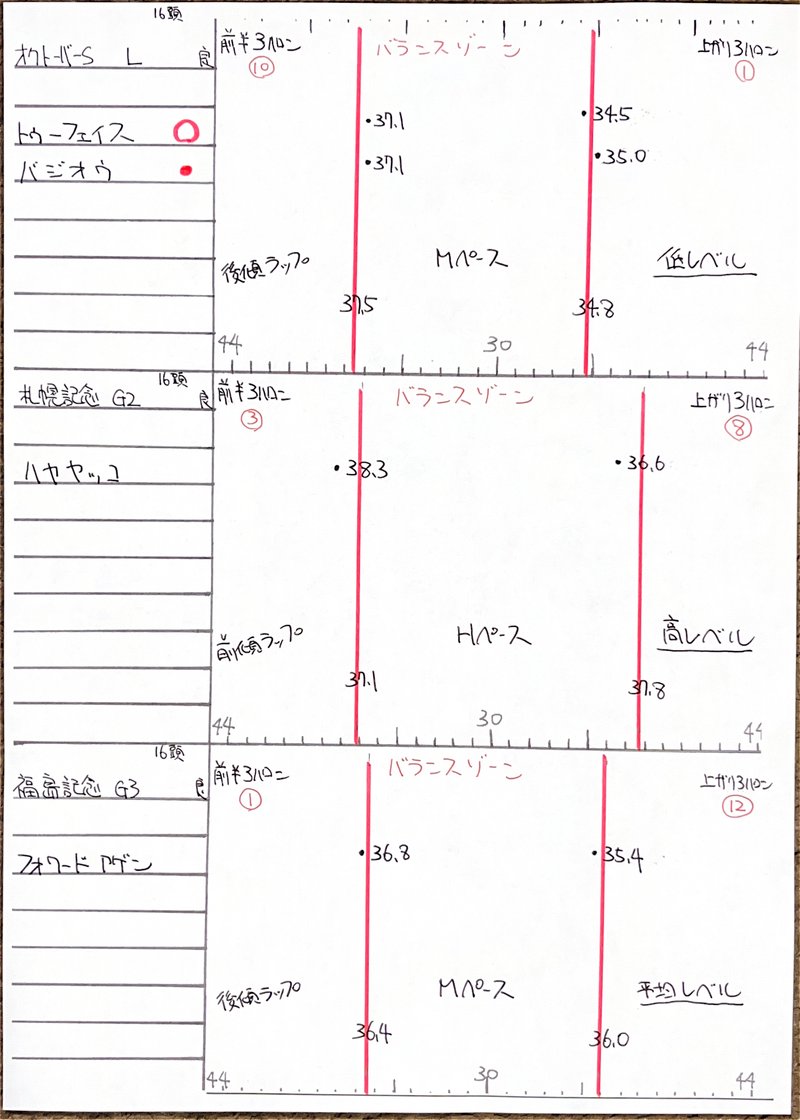 16頭
オクトーバーS L 良
前半3ハロン
バランスゾーン
上がり3ハロン
⑩
①
トゥーフェイス
・37.1
・34.5
バジオウ
・37.1
・35.0
後傾ラップ
Mペース
低レベル
37.5
34.8
44
30
44
16頭
札幌記念 G2 良
前半3ハロン
バランスゾーン
上がり3ハロン
③
⑧
ハヤヤッコ
・38.3
・36.6
前傾ラップ
Hペース
高レベル
37.1
37.8
44
30
44
16頭
福島記念 G3 良
前半3ハロン
バランスゾーン
上がり3ハロン
①
⑫
フォワードアゲン
・36.8
・35.4
後傾ラップ
Mペース
平均レベル
36.4
36.0
44
30
44